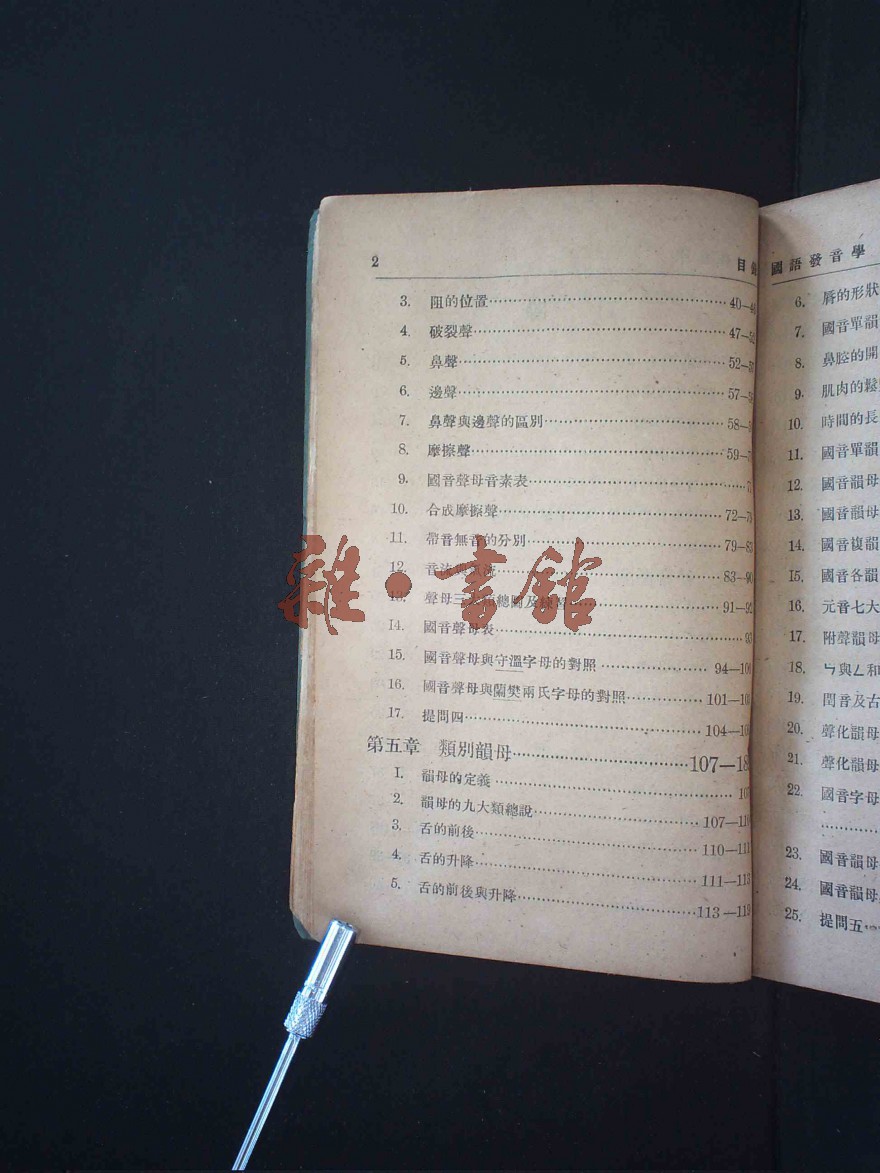 2
目
3. 阻的位置 40—
4. 破裂聲 47—
5. 鼻聲 52—
6. 邊聲 57—
7. 鼻聲與邊聲的區別 58—
8. 摩擦聲 59—
9. 國音聲母音素表
10. 合成摩擦聲 72—
11. 帶音無音的分別 79—
12. 83—90
13. 聲母 91—92
14. 國音聲母表 93
15. 國音聲母與守溫字母的對照 94—
16. 國音聲母與蘭樊兩氏字母的對照 101—
17. 提問四 104—
第五章 類別韻母 107—
1. 韻母的定義 107
2. 韻母的九大類總說 107—
3. 舌的前後 110—
4. 舌的升降 111—113
5. 舌的前後與升降 113—
國語發音學
6. 唇的形狀
7. 國音單韻
8. 鼻腔的開
9. 肌肉的鬆
10. 時間的長
11. 國音單韻
12. 國音韻母
13. 國音韻母
14. 國音複韻
15. 國音各韻
16. 元音七大
17. 附聲韻母
18. ㄣ與ㄥ和
19. 閏音及古
20. 聲化韻母
21. 聲化韻母
22. 國音字母
23. 國音韻母
24. 國音韻母
25. 提問五
雜·書館